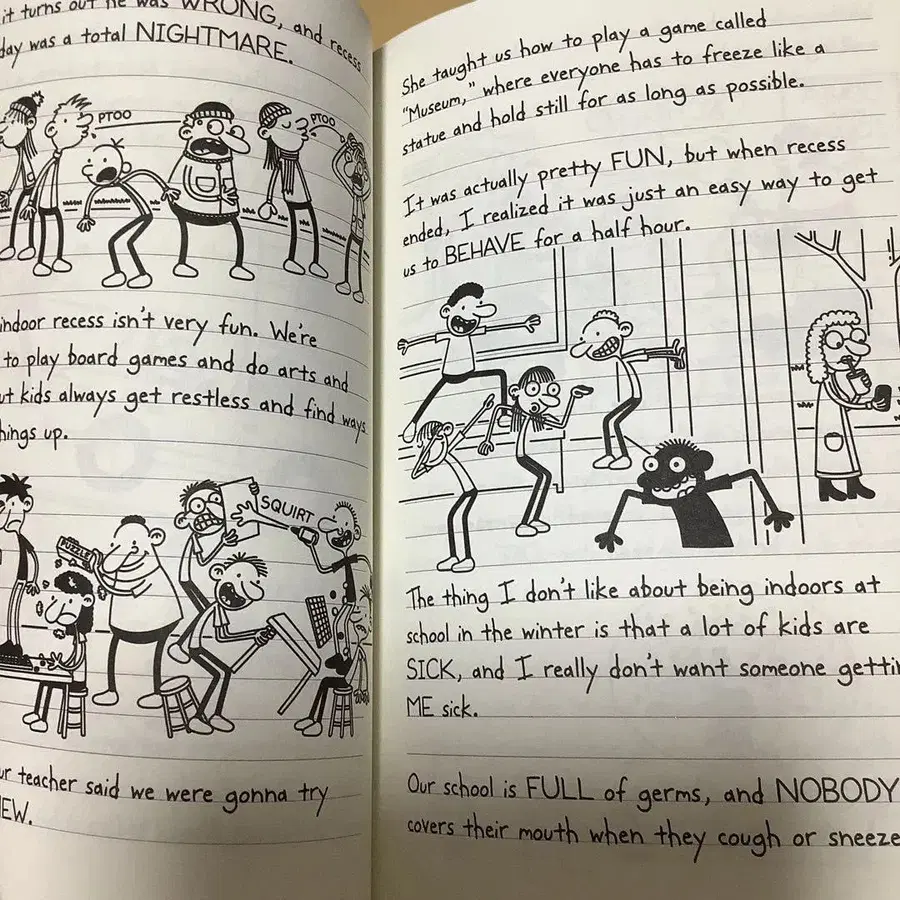 it turns out he was WRONG, and recess
day was a total NIGHTMARE.
PTOO
PTOO
indoor recess isn't very fun. We're
to play board games and do arts and
ut kids always get restless and find ways
hings up.
PUZZLE
SQUIRT
ur teacher said we were gonna try
EW.
She taught us how to play a game called
"Museum," where everyone has to freeze like a
statue and hold still for as long as possible.
It was actually pretty FUN, but when recess
ended, I realized it was just an easy way to get
us to BEHAVE for a half hour.
The thing I don't like about being indoors at
school in the winter is that a lot of kids are
SICK, and I really don't want someone gettin
ME sick.
Our school is FULL of germs, and NOBODY
covers their mouth when they cough or sneeze